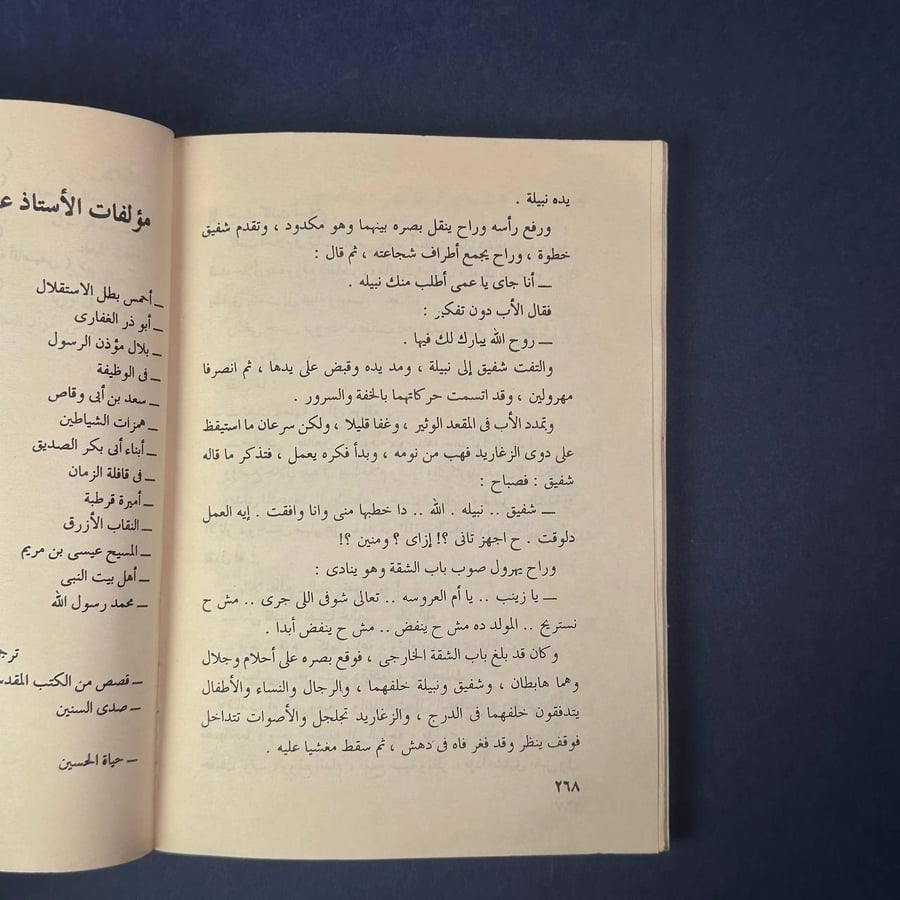 يده نبيلة .
ورفع رأسه وراح ينقل بصره بينهما وهو مكدود ، وتقدم شفيق
خطوة ، وراح يجمع أطراف شجاعته ، ثم قال :
ــ أنا جاى يا عمى أطلب منك نبيله .
فقال الأب دون تفكير :
ــ روح الله يبارك لك فيها .
والتفت شفيق إلى نبيلة ، ومد يده وقبض على يدها ، ثم انصرفا
مهرولين ، وقد اتسمت حركاتهما بالخفة والسرور .
وتمدد الأب فى المقعد الوثير ، وغفا قليلا ، ولكن سرعان ما استيقظ
على دوى الزغاريد فهب من نومه ، وبدأ فكره يعمل ، فتذكر ما قاله
شفيق : فصباح :
ــ شفيق .. نبيله . الله .. دا خطبها منى وانا وافقت . إيه العمل
دلوقت . ح اجهز تانى ؟! إزاى ؟ ومنين ؟!
وراح يهرول صوب باب الشقة وهو ينادى :
ــ يا زينب .. يا أم العروسه .. تعالى شوفى اللى جرى .. مش ح
نستريح .. المولد ده مش ح ينفض .. مش ح ينفض أبدا .
وكان قد بلغ باب الشقة الخارجى ، فوقع بصره على أحلام وجلال
وهما هابطان ، وشفيق ونبيلة خلفهما ، والرجال والنساء والأطفال
يتدفقون خلفهما فى الدرج ، والزغاريد تجلجل والأصوات تتداخل
فوقف ينظر وقد فغر فاه فى دهش ، ثم سقط مغشيا عليه .
٢٦٨
مؤلفات الأستاذ
ــ أحمس بطل الاستقلال
ــ أبو ذر الغفارى
ــ بلال مؤذن الرسول
ــ فى الوظيفة
ــ سعد بن أبى وقاص
ــ همزات الشياطين
ــ أبناء أبى بكر الصديق
ــ فى قافلة الزمان
ــ أميرة قرطبة
ــ النقاب الأزرق
ــ المسيح عيسى بن مريم
ــ أهل بيت النبى
ــ محمد رسول الله
ــ قصص من الكتب
ــ صدى السنين
ــ حياة الحسين